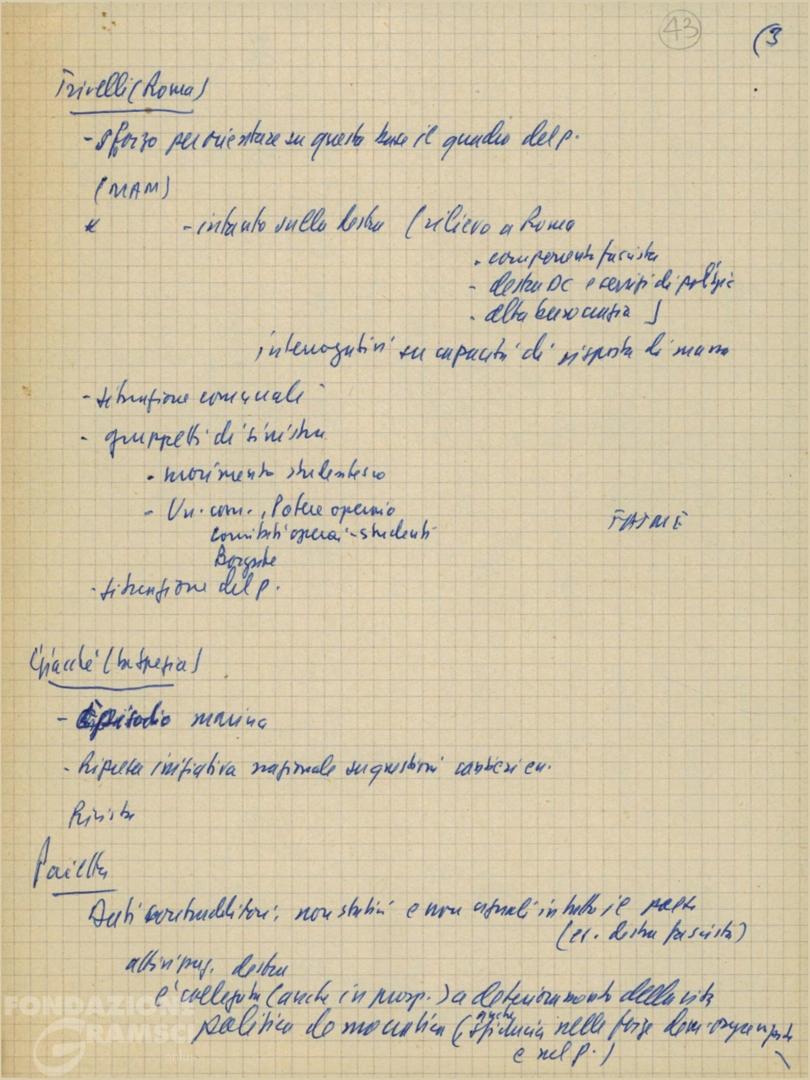 43
(3
Trivelli (Roma)
- sforzo per orientare su questa base il quadro del p.
(MAM)
* - intanto sulla destra (rilievo a Roma
- componente fascista
- destra DC e servizi di polizia
- alta burocrazia)
interrogativi su capacità di risposta di massa
- situazione comunale
- gruppetti di sinistra
- movimento studentesco
- Un. com., Potere operaio
comitati operai-studenti
Borgate
FATME
- situazione del p.
Giacché (La Spezia)
- Episodio marina
- Ripresa iniziativa nazionale su questioni
Rivista
Pajetta
Dati contraddittori; non statici e non uguali in tutto il paese
(es. destra fascista)
destra
è collegata (anche in prosp.) a deterioramento della vita
politica democratica (anche sfiducia nelle forze dem.
e nel p.)
FONDAZIONE
GRAMSCI